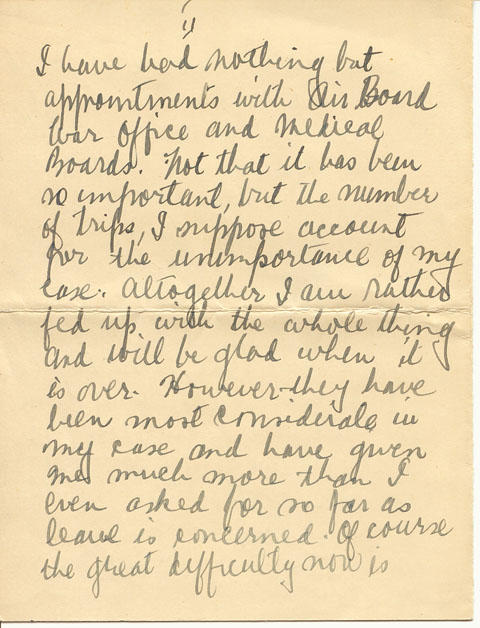 I have had nothing but
appointments with Air Board
War Office and Medical
Boards. Not that it has been
so important, but the number
of trips, I suppose account
for the unimportance of my
case. Altogether I am rather
fed up with the whole thing
and will be glad when it
is over. However they have
been most considerate in
my case and have given
me much more than I
even asked for so far as
leave is concerned. Of course
the great difficulty now is